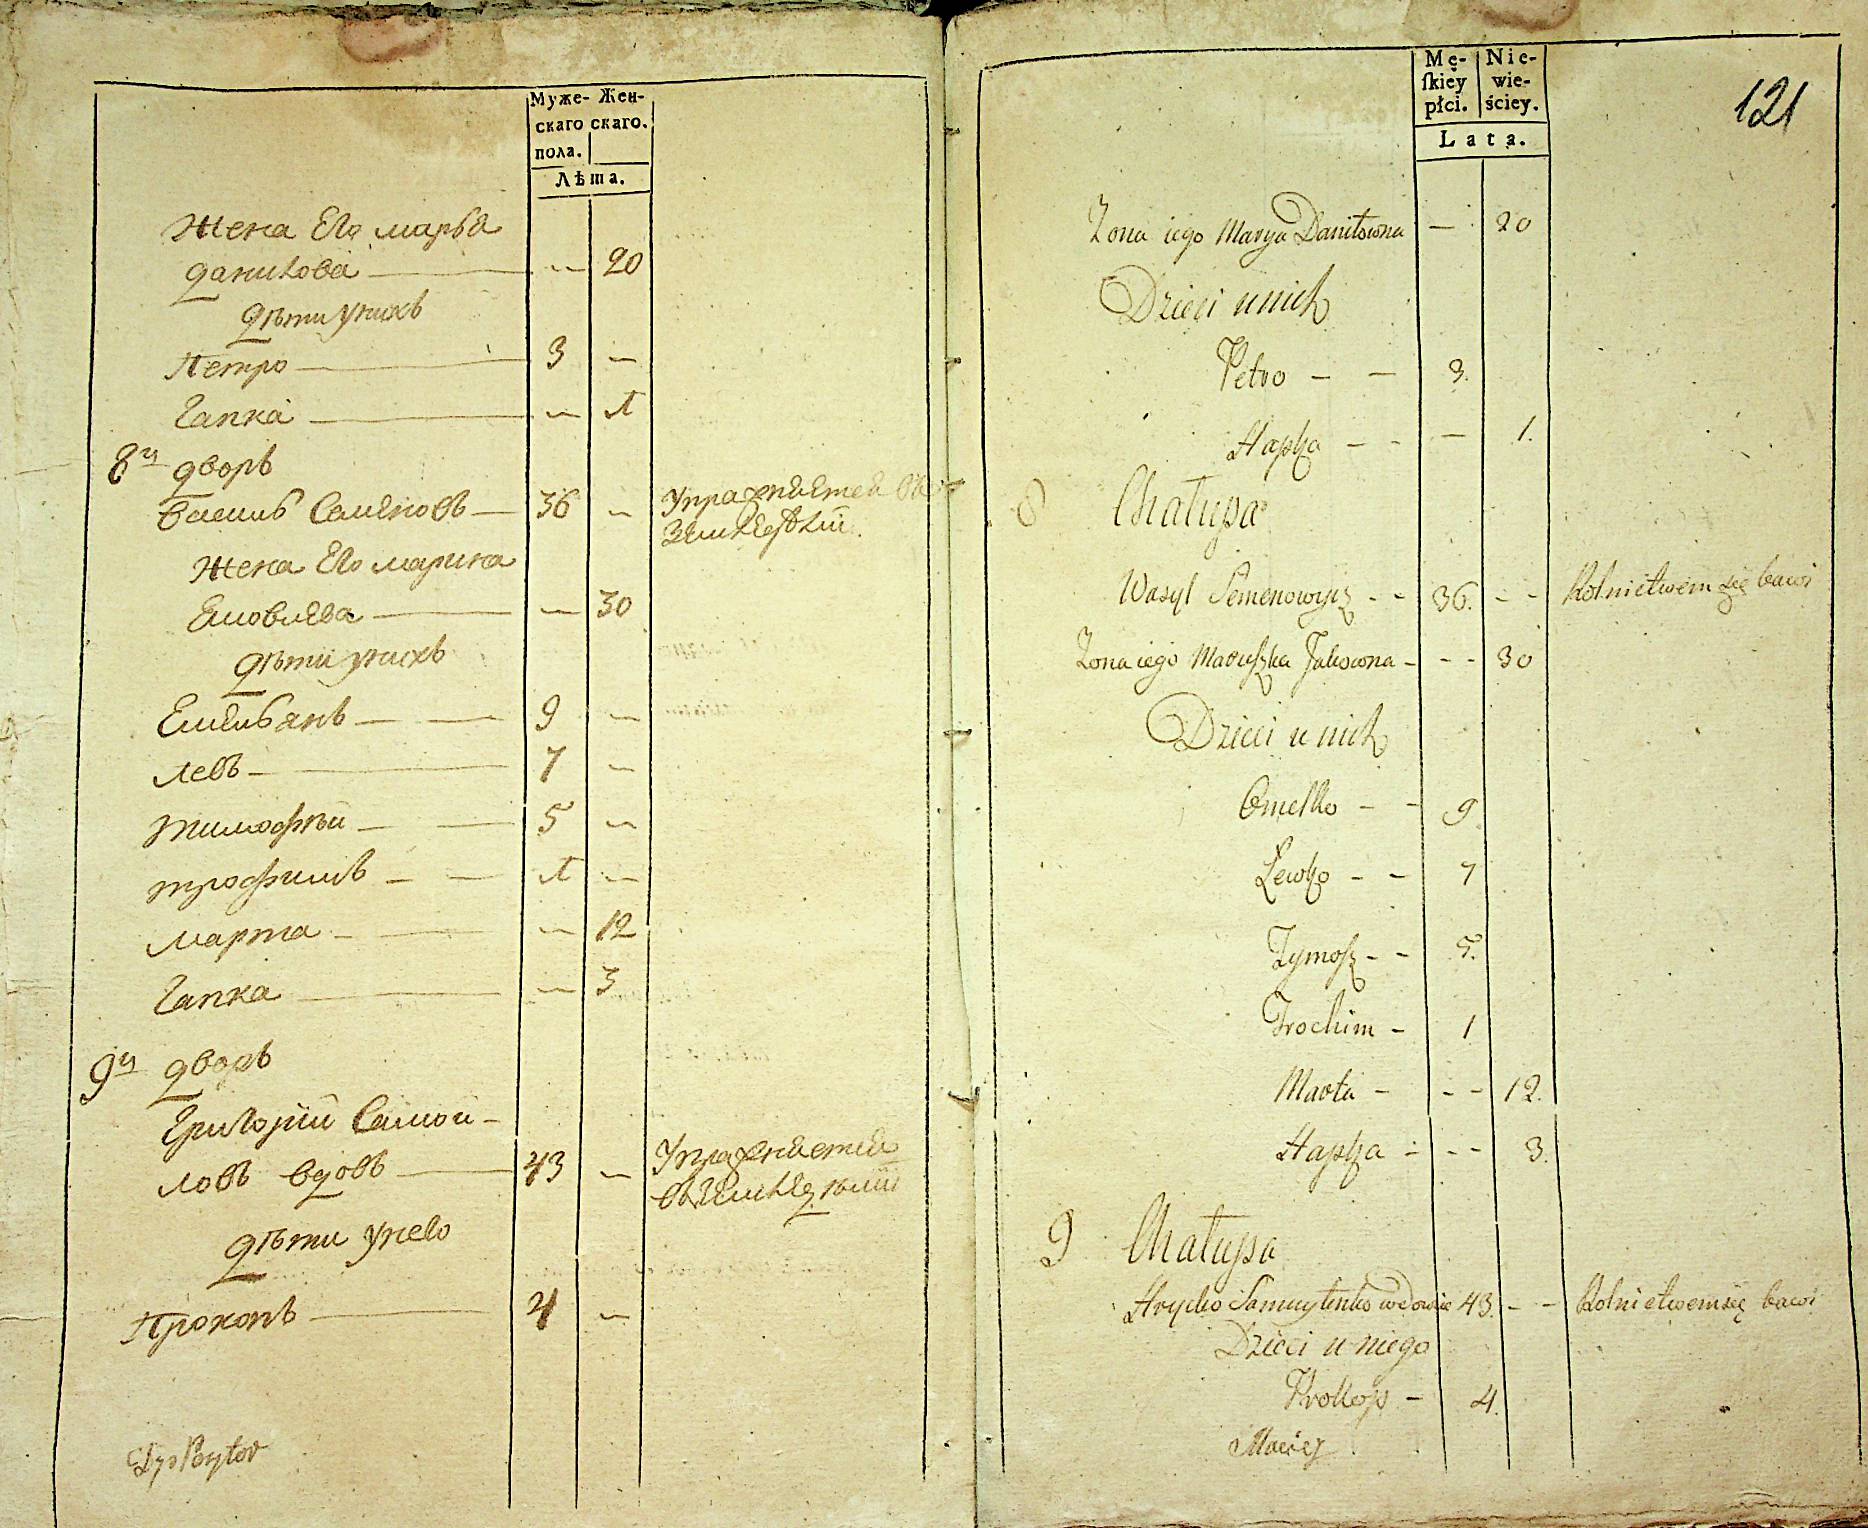 Муже- Жен-
скаго скаго.
пола.
Лѣта.
Жена Его марья
данилова — — 20
дѣти унихъ
Петро — 3 —
Гапка — — 1
8й дворъ
Василь Семеновъ — 36 — Упражняется въ
Земледѣлии
Жена Его марина
Яковлева — — 30
дѣти унихъ
Емельянъ — — 9 —
левъ — 7 —
тимофѣй — — 5 —
трофимъ — — 1 —
марта — — — 12
Гапка — — 3
9й дворъ
Григорий Самой-
ловъ вдовъ — 43 — Упражняется
въ Земледѣлии
дѣти унего
Прокопъ — 4 —
Mę-
ſkiey
płci.
Nie-
wie-
ściey.
Lata.
121
Zona iego Marya Daniłowna — 20
Dzieci u nich
Petro — — 3.
Hapka — - — 1.
8 Chałupa
Wasyl Semenowicz - - 36. - - Rolnictwem się bawi
Zona iego Maruszka Jakowna - - - 30
Dzieci u nich
Omelko - - 9
Lewko - - 7
Tymosz - - 5.
Trochim - 1
Marta - - - 12.
Hapka - - - 3.
9 Chałupa
Hryćko Samuylenko wdowiec 43. - - Rolnictwem się bawi
Dzieci u niego
Prokop - 4.
Maciey